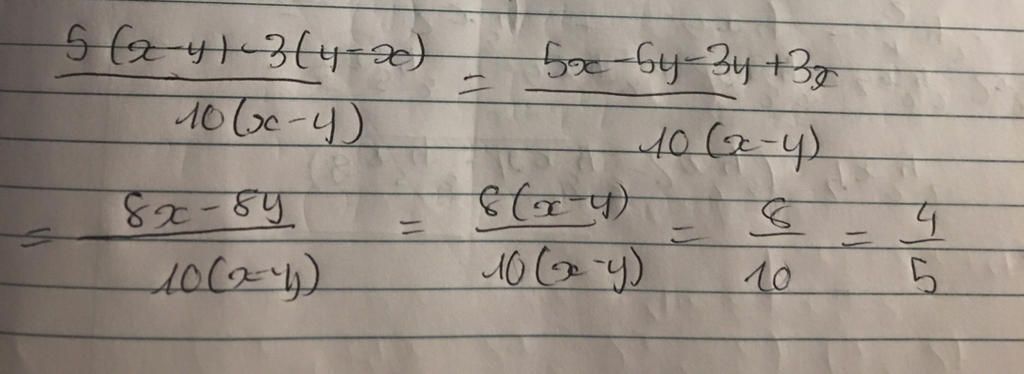 5(x-y)-3(y-x) / 10(x-y) = 5x-5y-3y+3x / 10(x-y)
= 8x-8y / 10(x-y) = 8(x-y) / 10(x-y) = 8 / 10 = 4 / 5